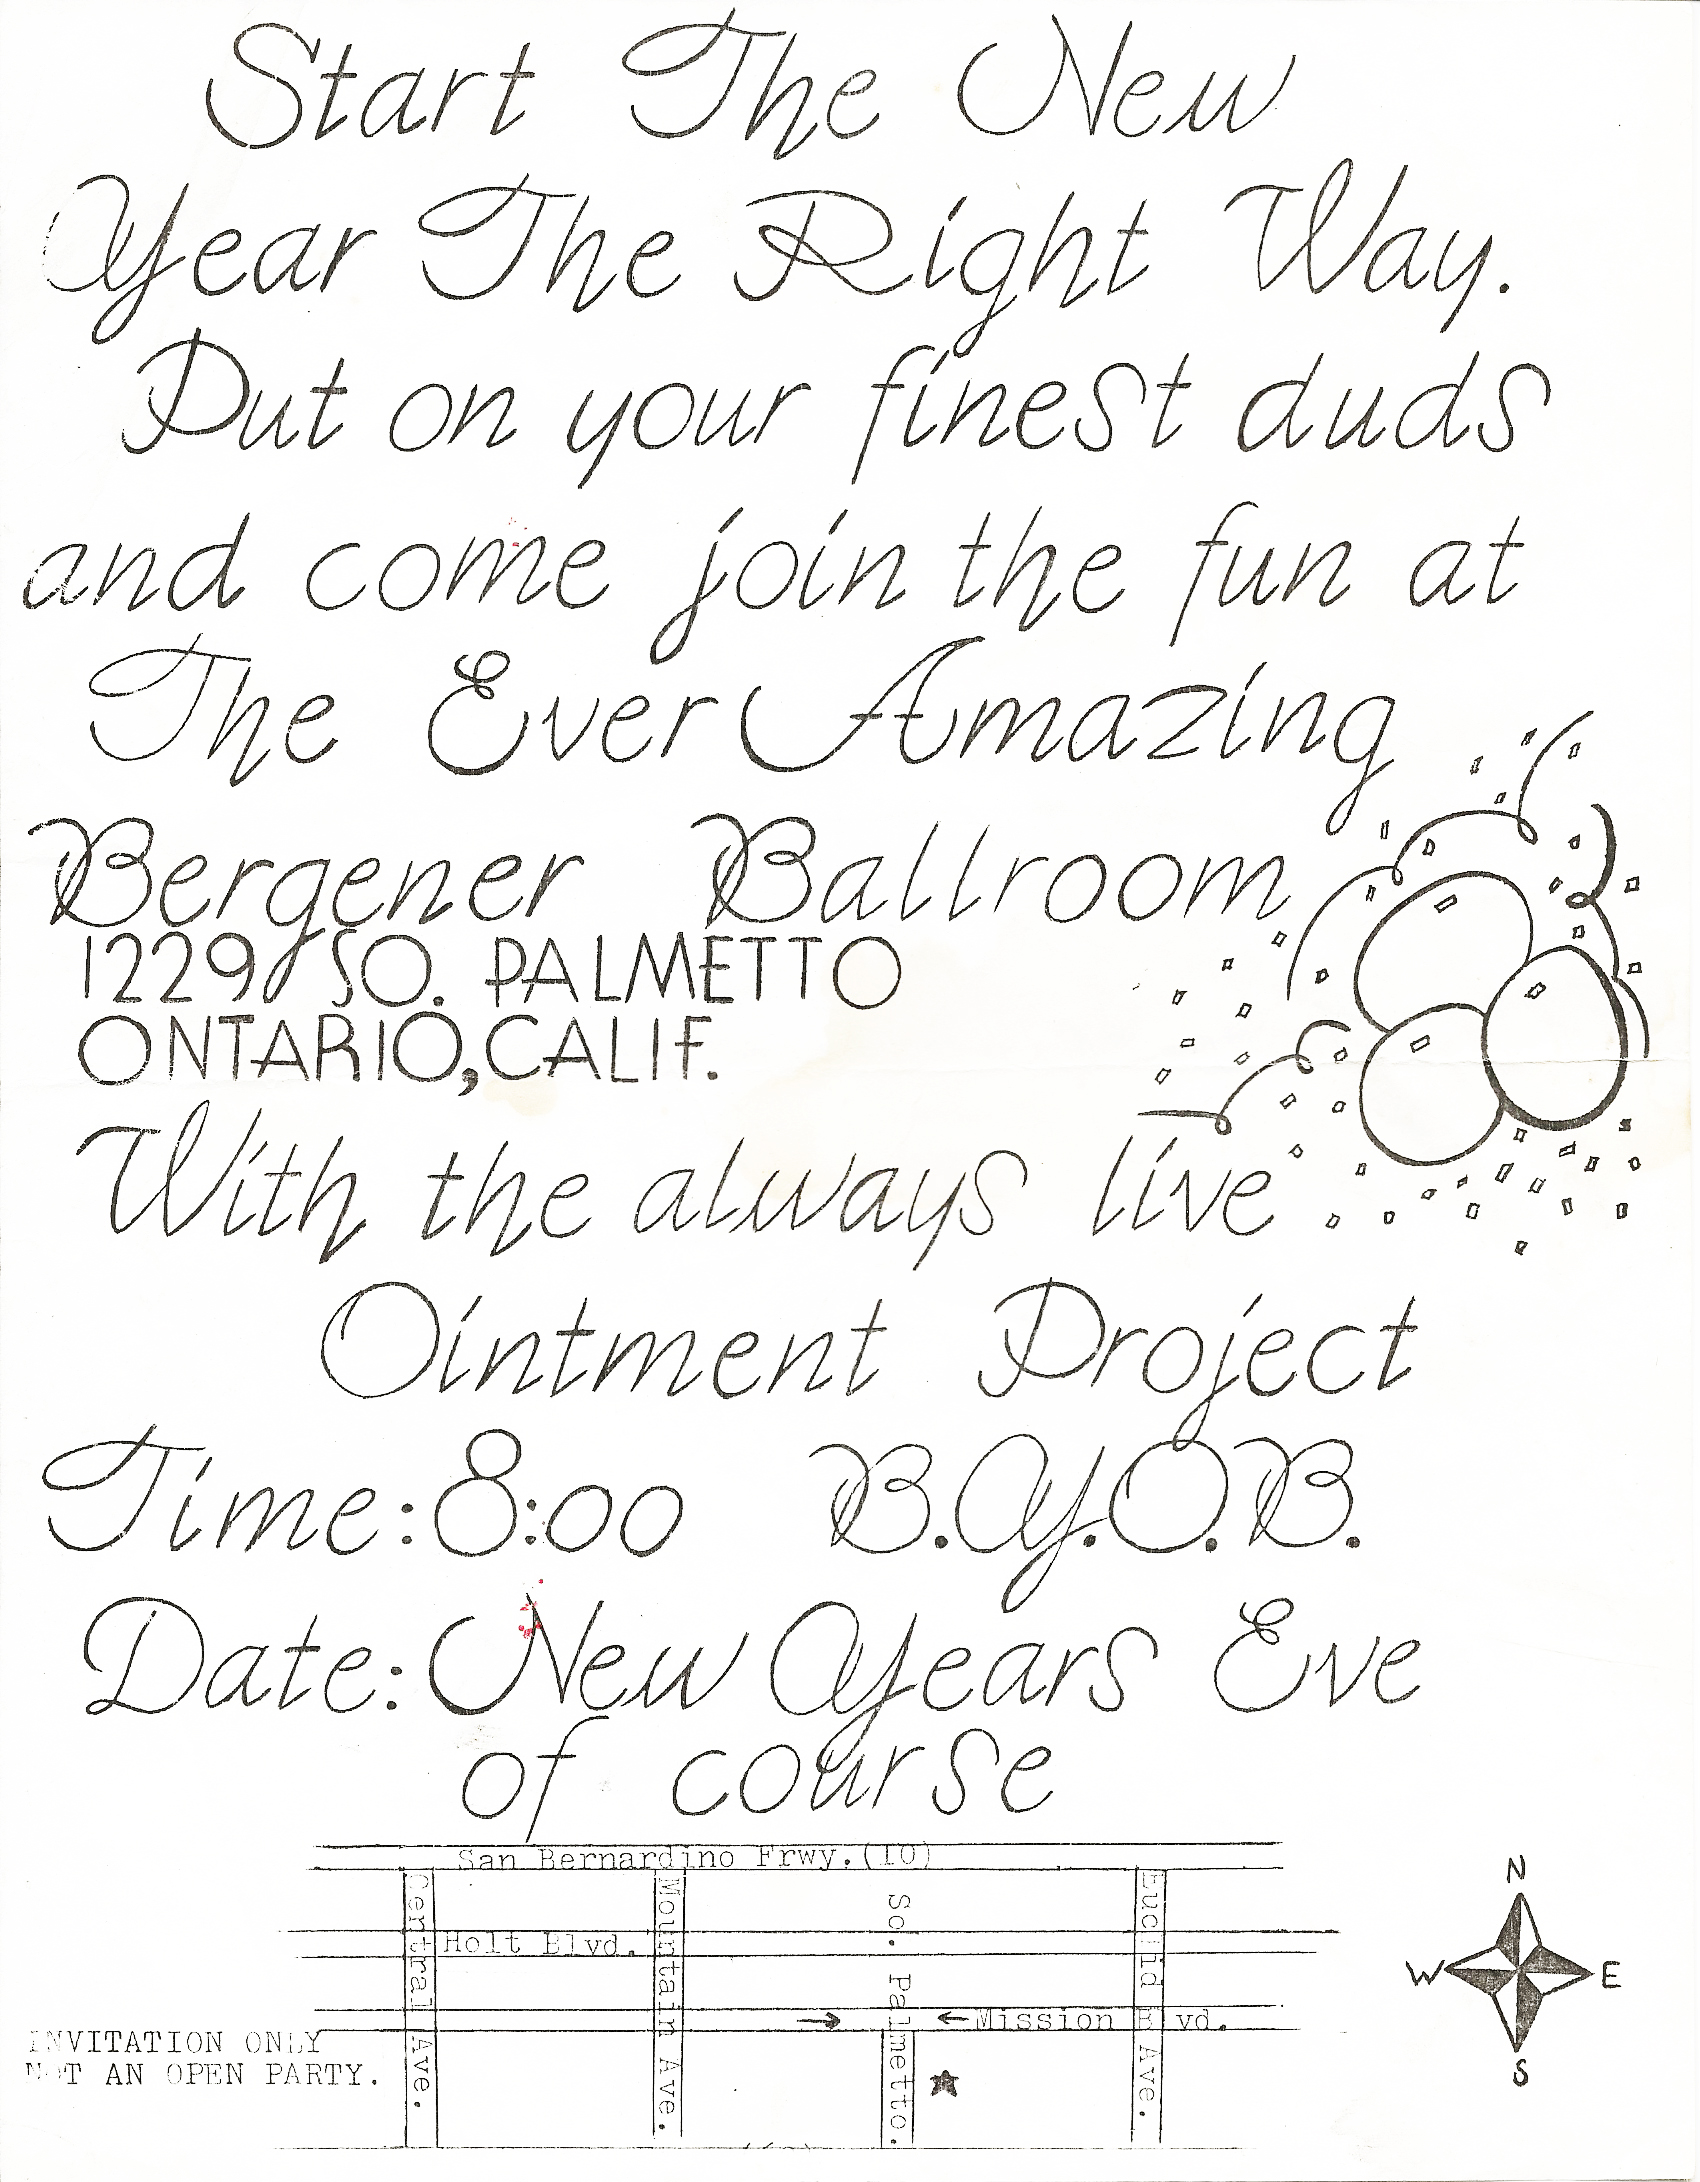 Start The New
Year The Right Way.
Put on your finest duds
and come join the fun at
The Ever Amazing
Bergener Ballroom
1229 SO. PALMETTO
ONTARIO, CALIF.
With the always live
Ointment Project
Time: 8:00 B.Y.O.B.
Date: New Years Eve
of course
San Bernardino Frwy. (10)
Central Ave.
Mountain Ave.
So. Palmetto.
Euclid Ave.
Holt Blvd.
→ ← Mission Blvd.
INVITATION ONLY
NOT AN OPEN PARTY.
N
W E
S